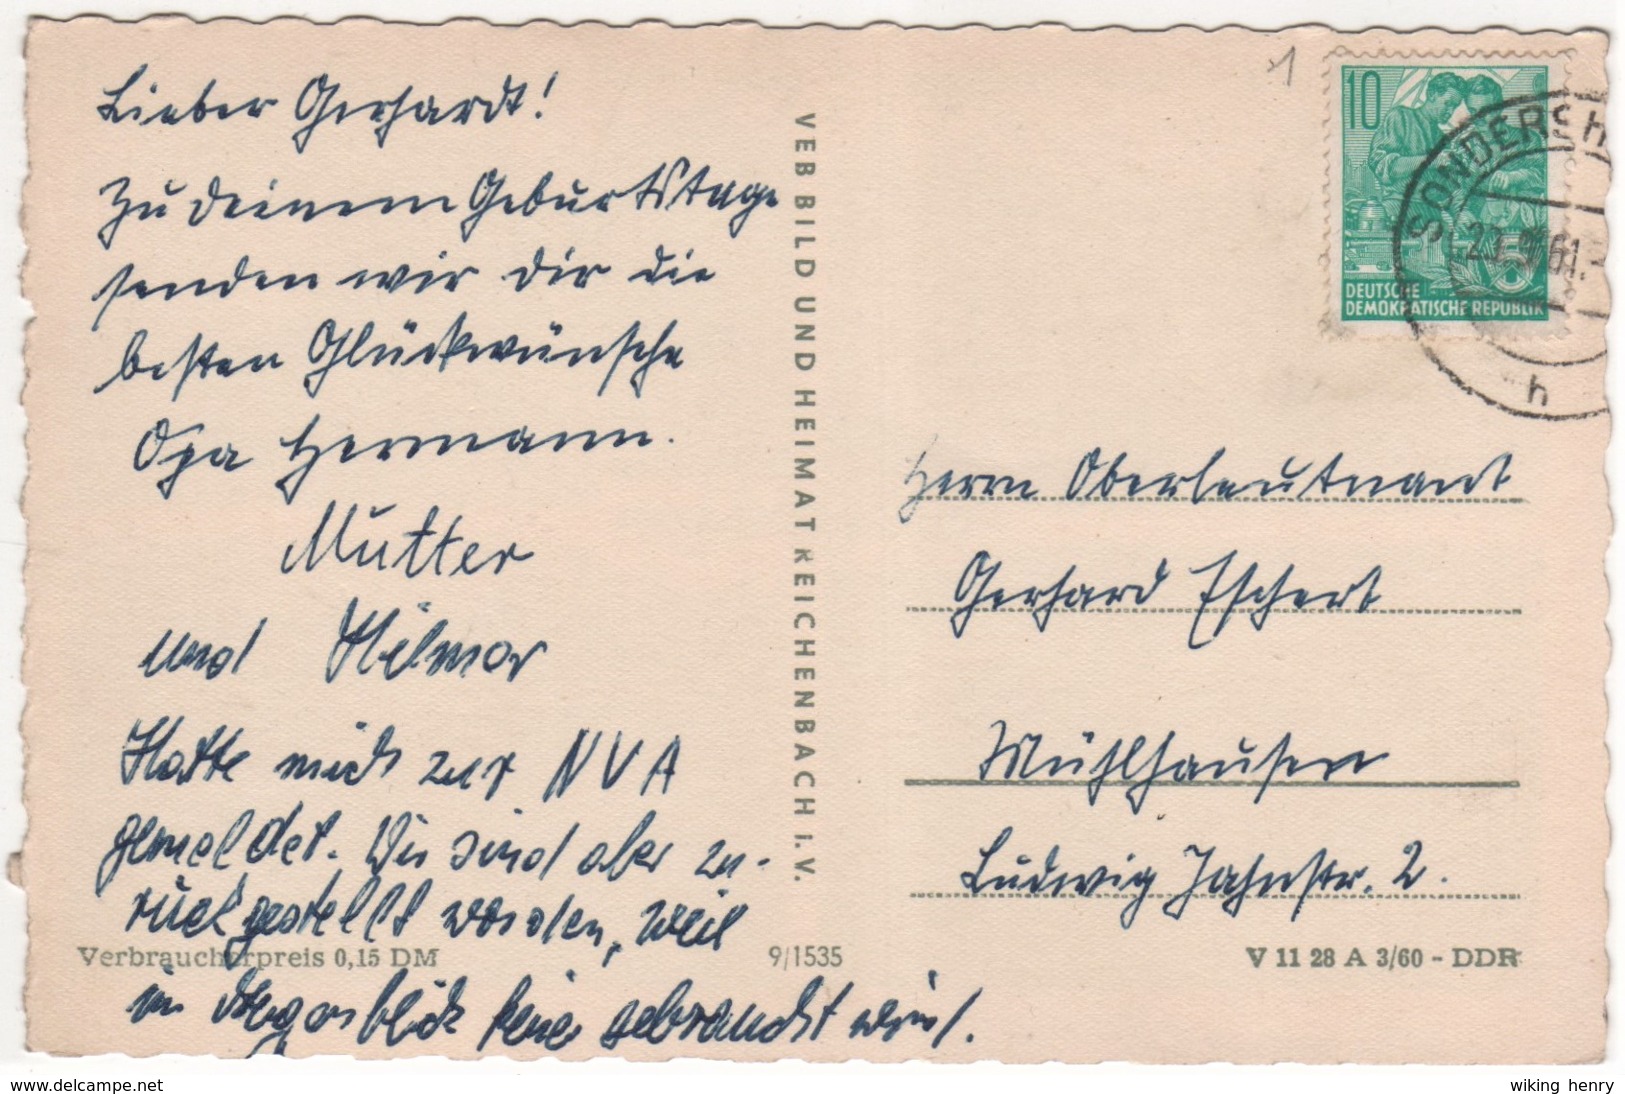 Lieber Gerhardt!
Zu deinem Geburtstage
senden wir dir die
besten Glückwünsche
Opa Hermann.
Mutter
und Hilmar
Hatte mich zur NVA
gemeldet. Wir sind aber zu-
rückgestellt worden, weil
im Augenblick keine gebraucht wird.
VEB BILD UND HEIMAT REICHENBACH I. V.
Verbraucherpreis 0,15 DM
9/1535
V 11 28 A 3/60 - DDR
1
10
DEUTSCHE
DEMOKRATISCHE REPUBLIK
SONDERSH
23.9.61.
h
Herrn Oberleutnant
Gerhard Eschert
Mühlhausen
Ludwig Jahnstr. 2.
www.delcampe.net
wiking henry